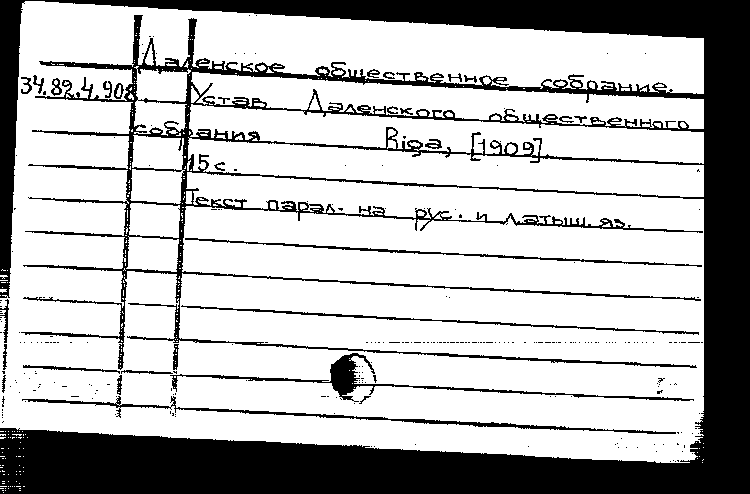 Даленское общественное собрание.
34.82.4.908. Устав Даленского общественного
собрания Rīga, [1909].
15 с.
Текст парал. на рус. и латыш. яз.